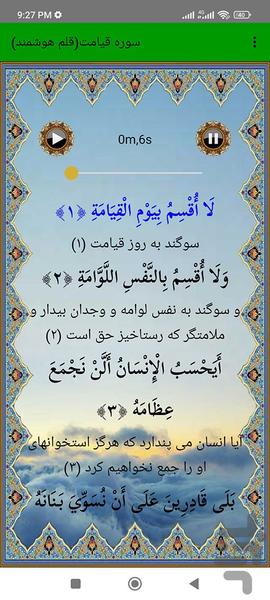 9:27 PM
سوره قیامت(قلم هوشمند)
0m,6s
لَا أُقْسِمُ بِيَوْمِ الْقِيَامَةِ ﴿١﴾
سوگند به روز قیامت (۱)
وَلَا أُقْسِمُ بِالنَّفْسِ اللَّوَّامَةِ ﴿٢﴾
و سوگند به نفس لوامه و وجدان بیدار و
ملامتگر که رستاخیز حق است (۲)
أَيَحْسَبُ الْإِنْسَانُ أَلَّنْ نَجْمَعَ
عِظَامَهُ ﴿٣﴾
آیا انسان می پندارد که هرگز استخوانهای
او را جمع نخواهیم کرد (۳)
بَلَى قَادِرِينَ عَلَى أَنْ نُسَوِّيَ بَنَانَهُ